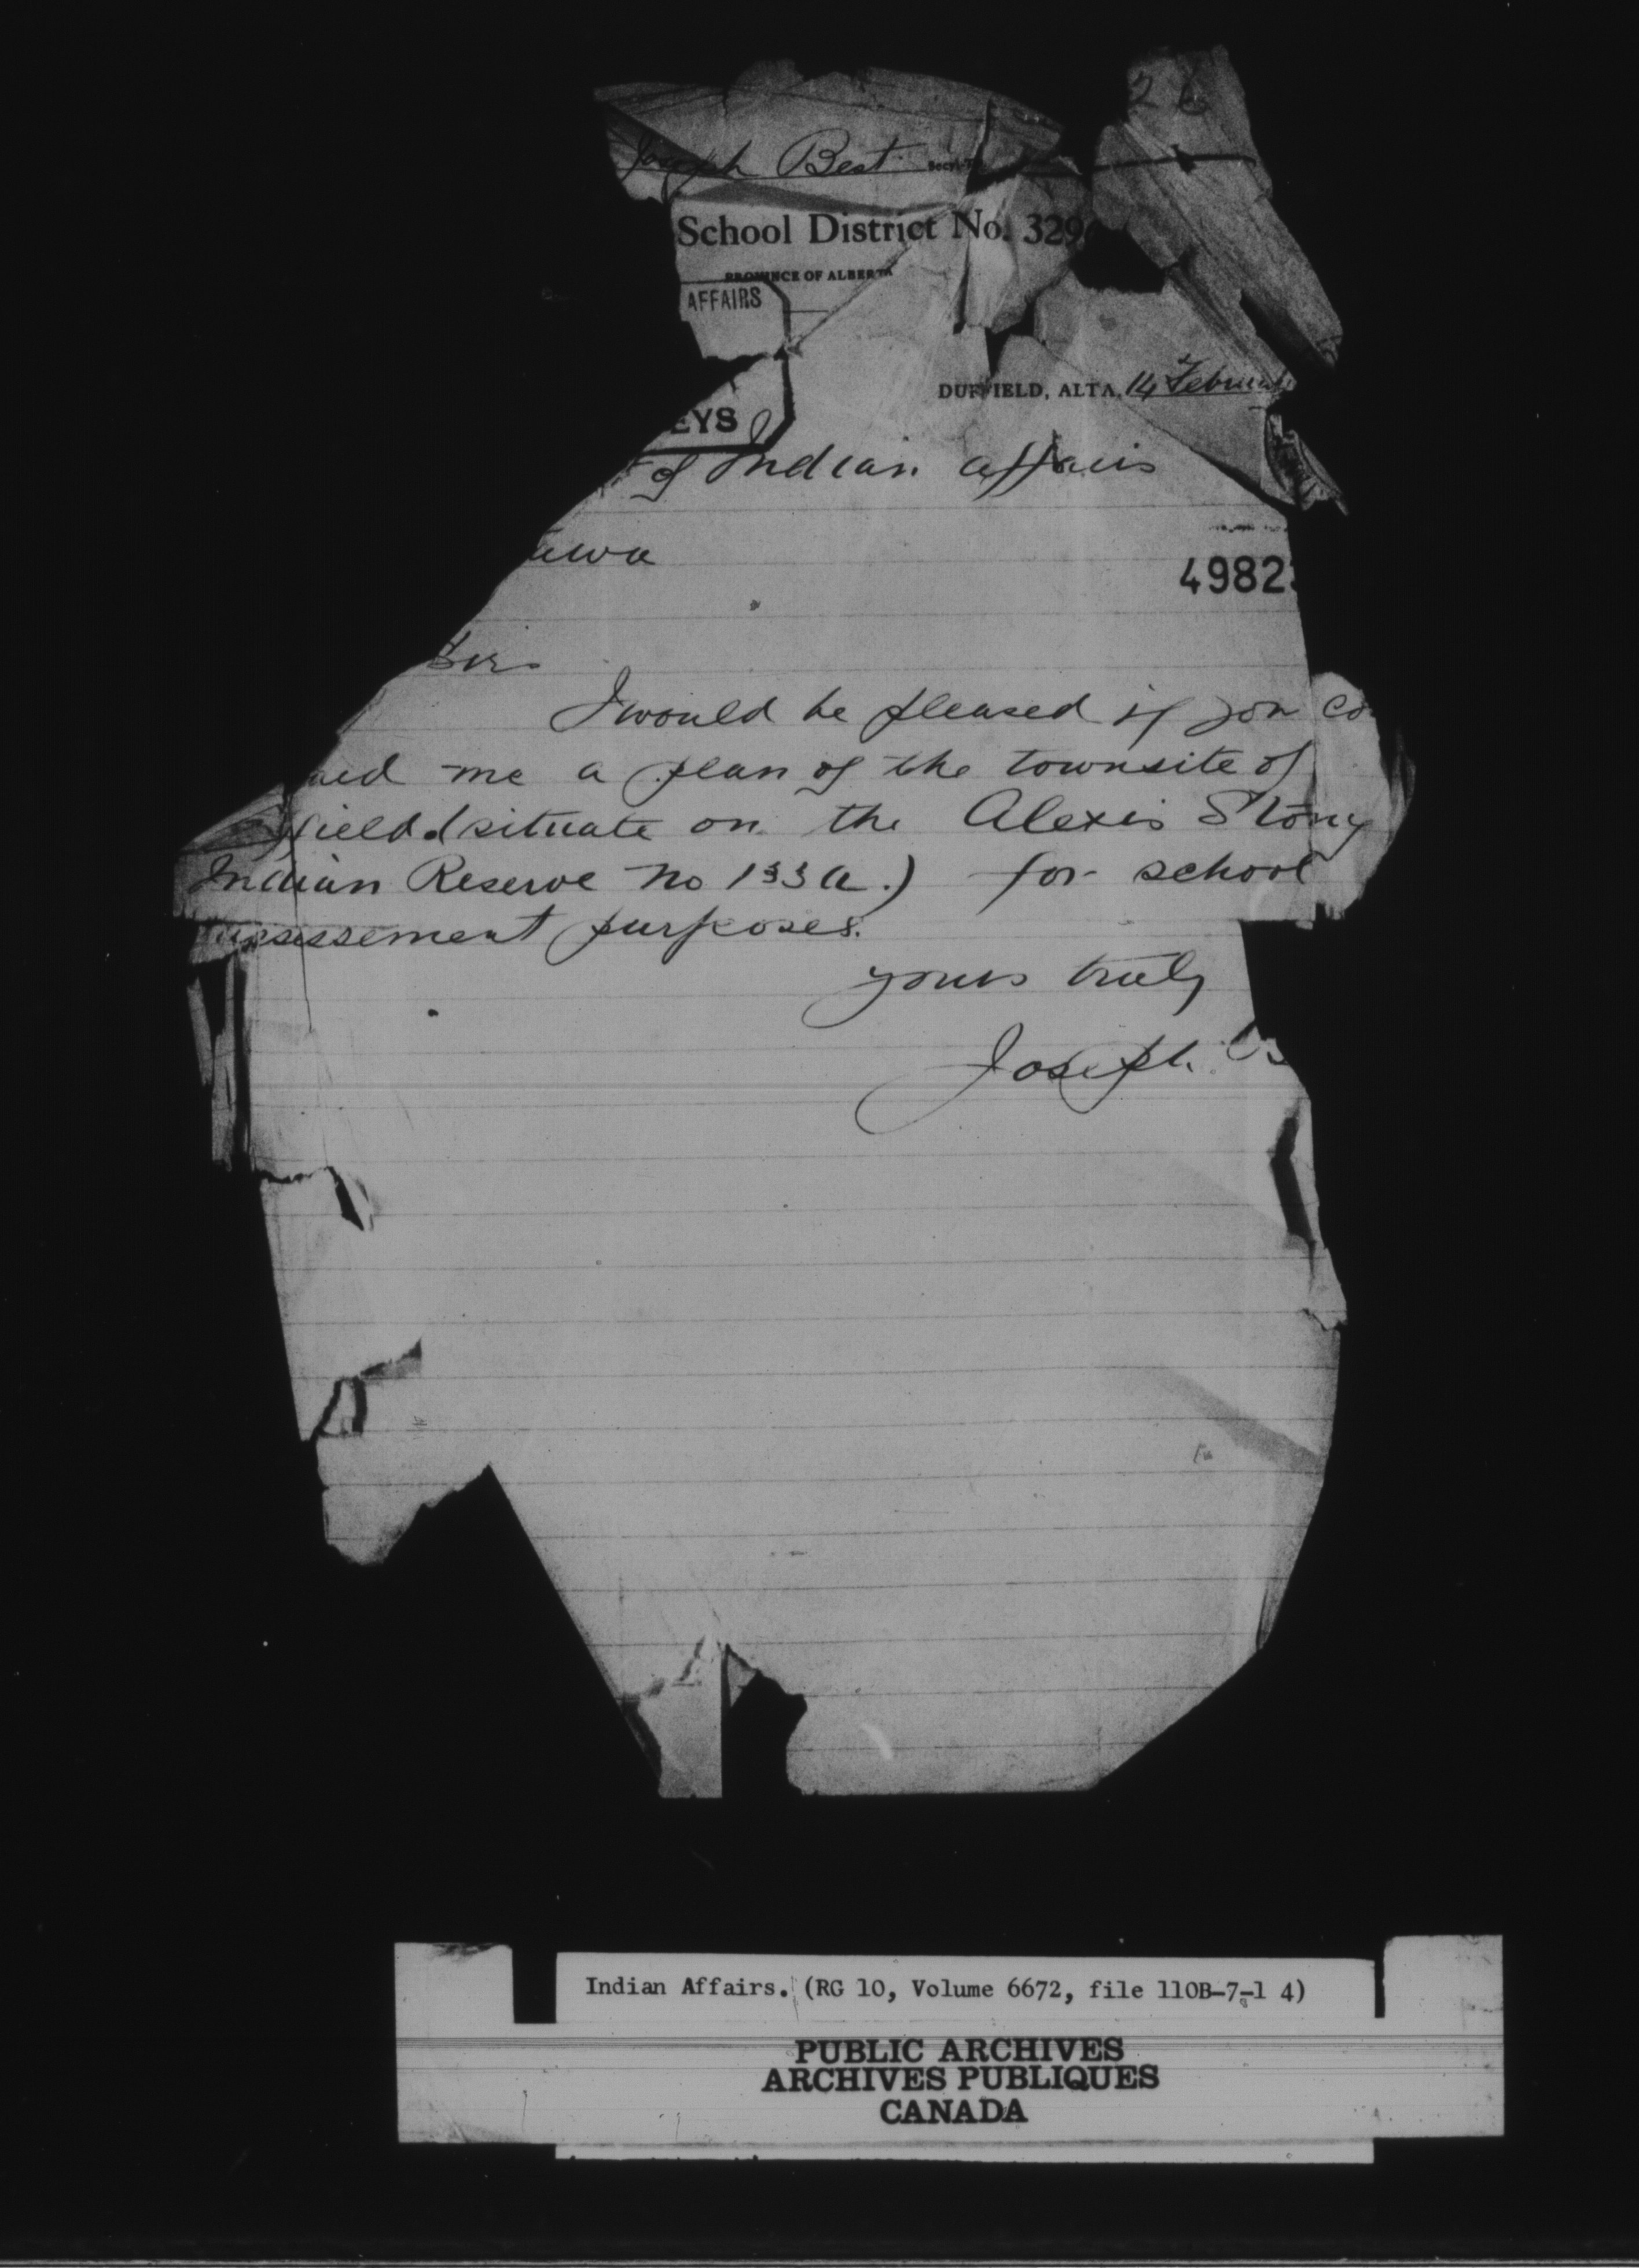 26
Joseph Best
School District No. 329
PROVINCE OF ALBERTA
AFFAIRS
DUFFIELD, ALTA, 14 Februa
EYS
of Indian affairs
awa
49823
Sir
I would be pleased if you co
me a plan of the townsite of
field (situate on the Alexis Stony
Indian Reserve No 133a.) for school
assessement purposes.
yours truly
Joseph B
Indian Affairs. (RG 10, Volume 6672, file 110B-7-1 4)
PUBLIC ARCHIVES
ARCHIVES PUBLIQUES
CANADA